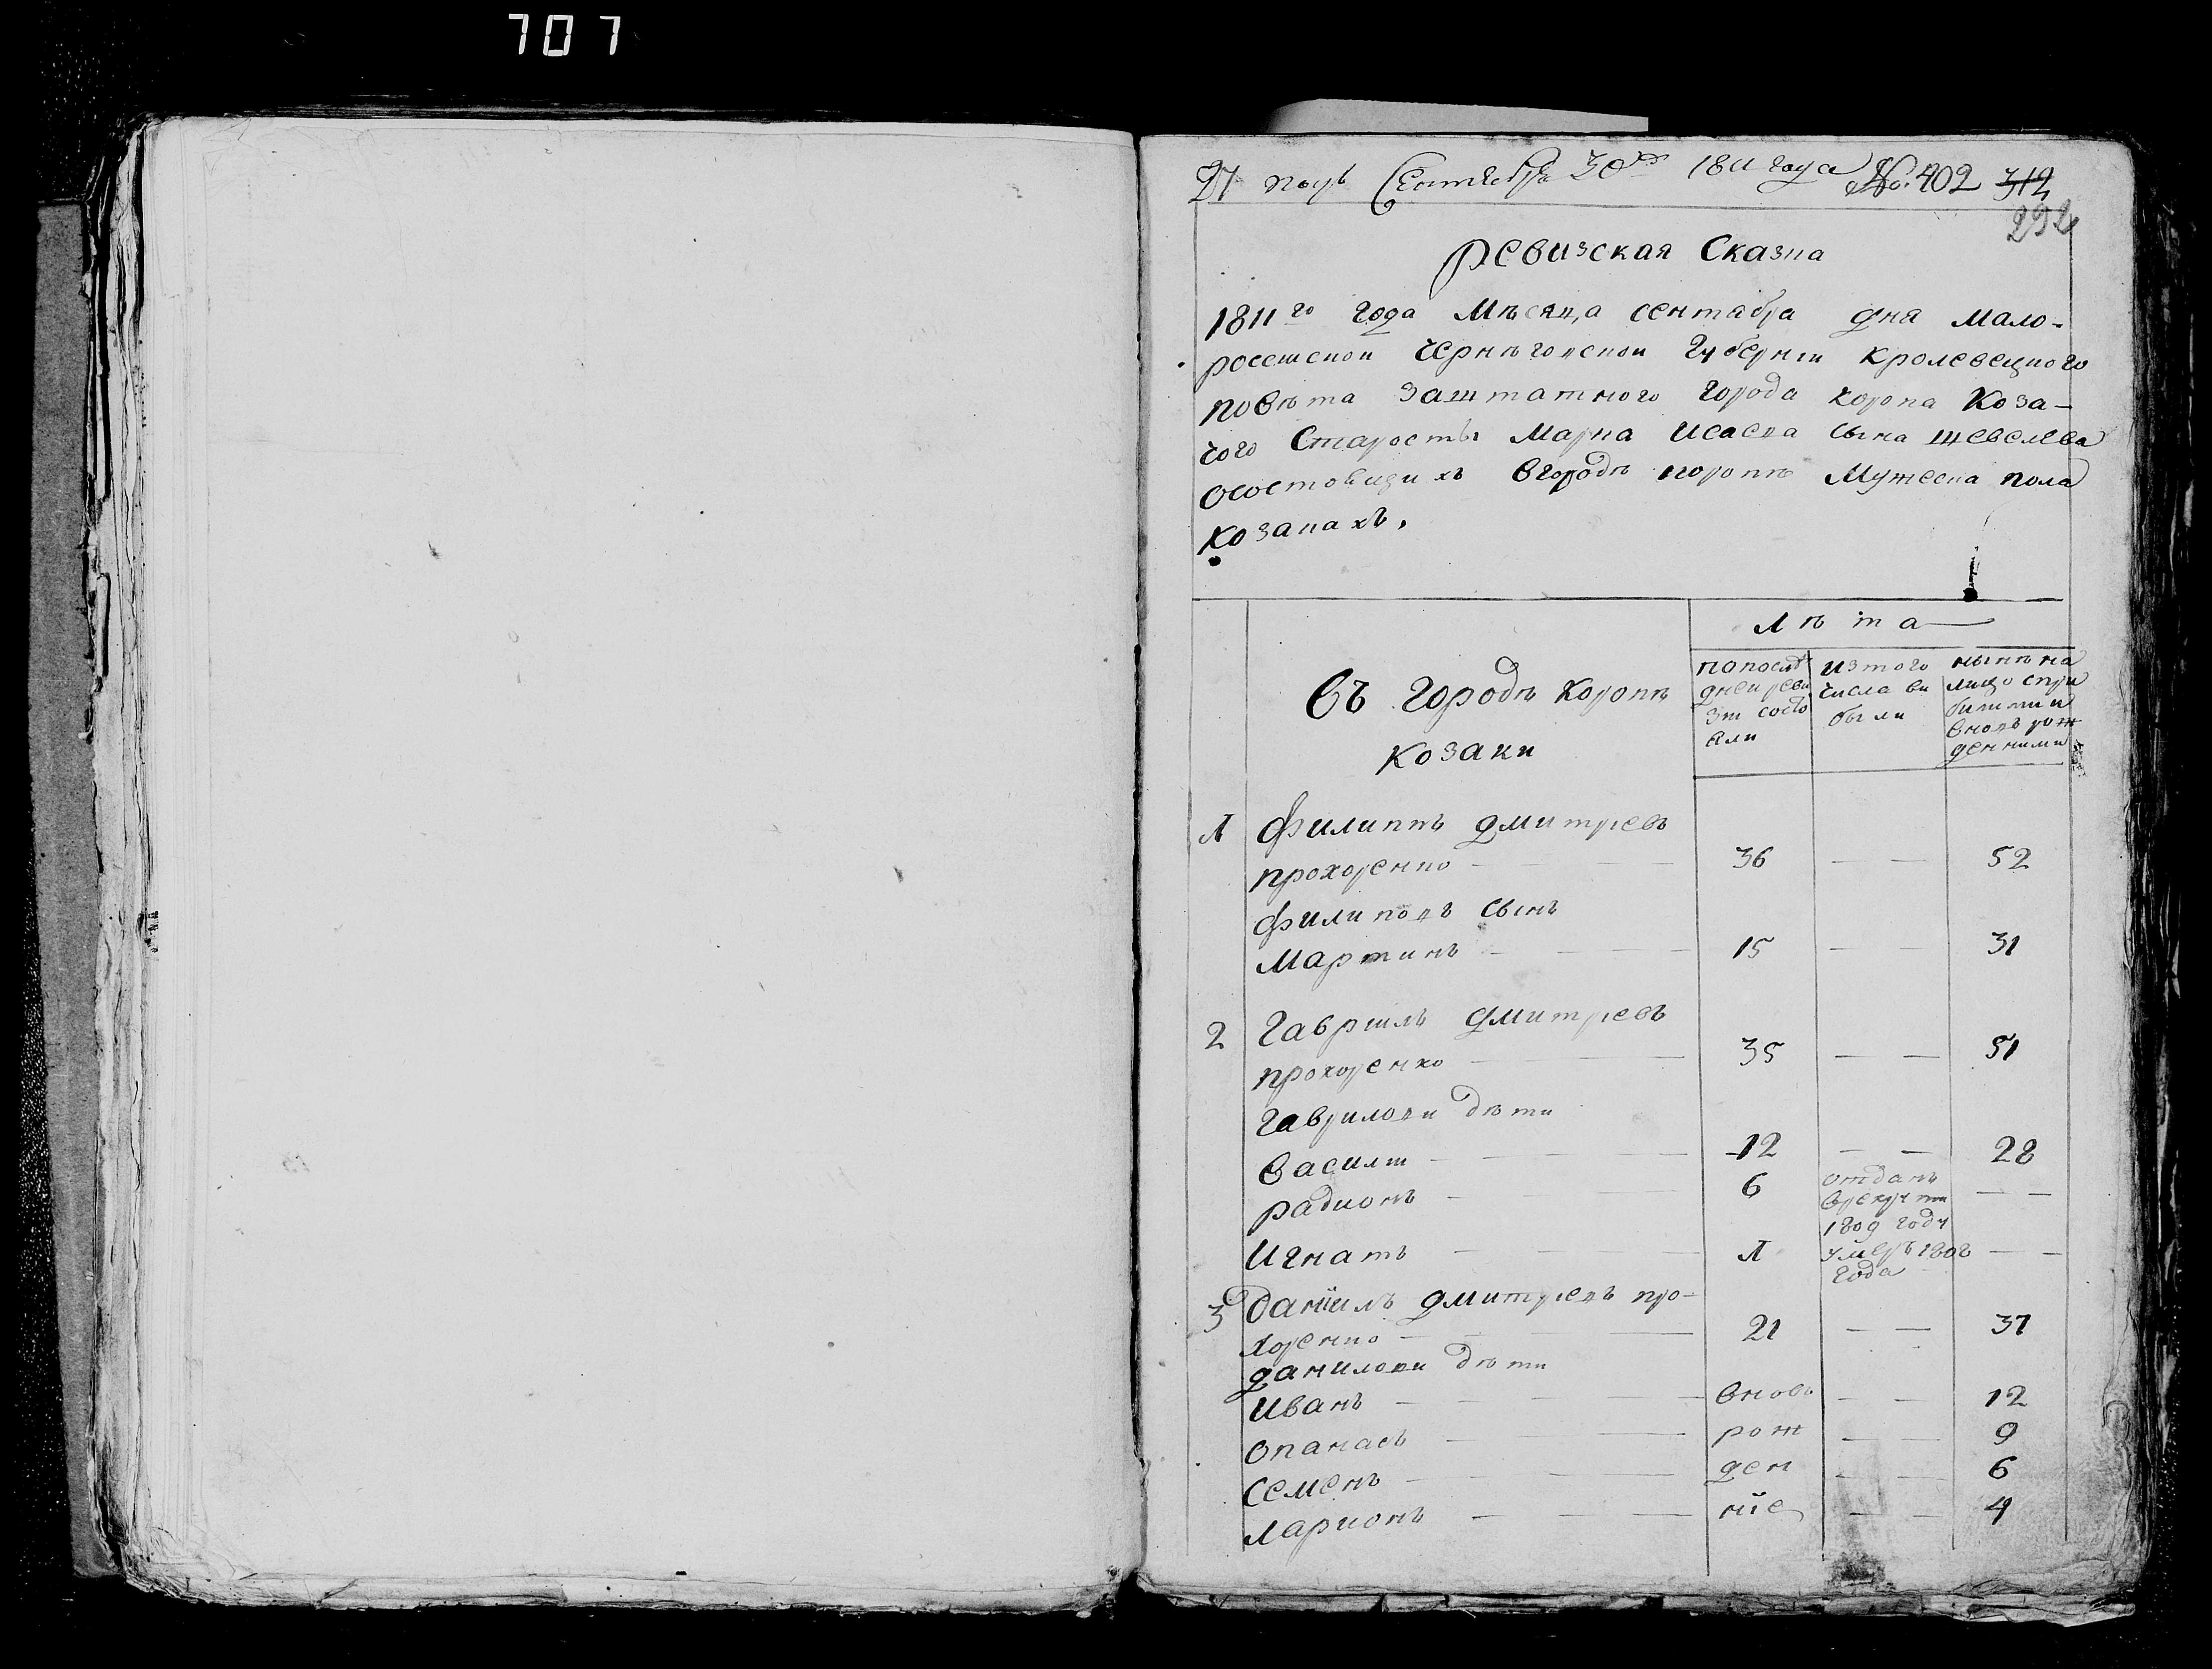 707
Сентября 30го 1811 года № 402 312
292
Ревизская Сказка
1811го года Мѣсяца сентабра дня мало-
росѣиской Чернѣговской Губернии Кролевецкого
повѣта Заштатного города Коропа Коза-
чого Старосты Марка Исаева сына Шевелева
осостоящихъ вгородѣ коропѣ Мужеска пола
козакахъ.
Лѣта
Въ Городѣ Коропѣ
козаки
попослѣ
дней реви
зіи состо
яли
изтого
числа ви
были
нынѣ на
лицо спри
билими и
вновь рож
денними
1 Филиппъ Дмитревъ
прохоренко — 36 — — 52
Филиповъ сынъ
Мартинъ — 15 — — 31
2 Гавриилъ Дмитревъ
прохоренко — 35 — — 51
Гаврилови дѣти
Василій — 12 — — 28
Радионъ — 6 отданъ
врекруты
1809 году — —
Игнатъ — 1 умеръ 1808
года — —
3 Даніилъ Дмитревъ про-
хоренко — 21 — — 37
Данилови дѣти
Иванъ — вновь — — 12
Опанасъ — рож — — 9
Семенъ — ден — — 6
Ларионъ — ніе — — 4